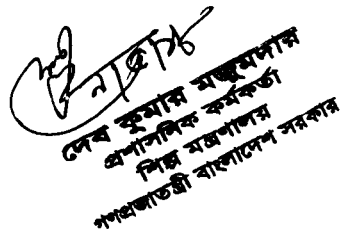 দেব কুমার মজুমদার
প্রশাসনিক কর্মকর্তা
শিল্প মন্ত্রণালয়
গণপ্রজাতন্ত্রী বাংলাদেশ সরকার